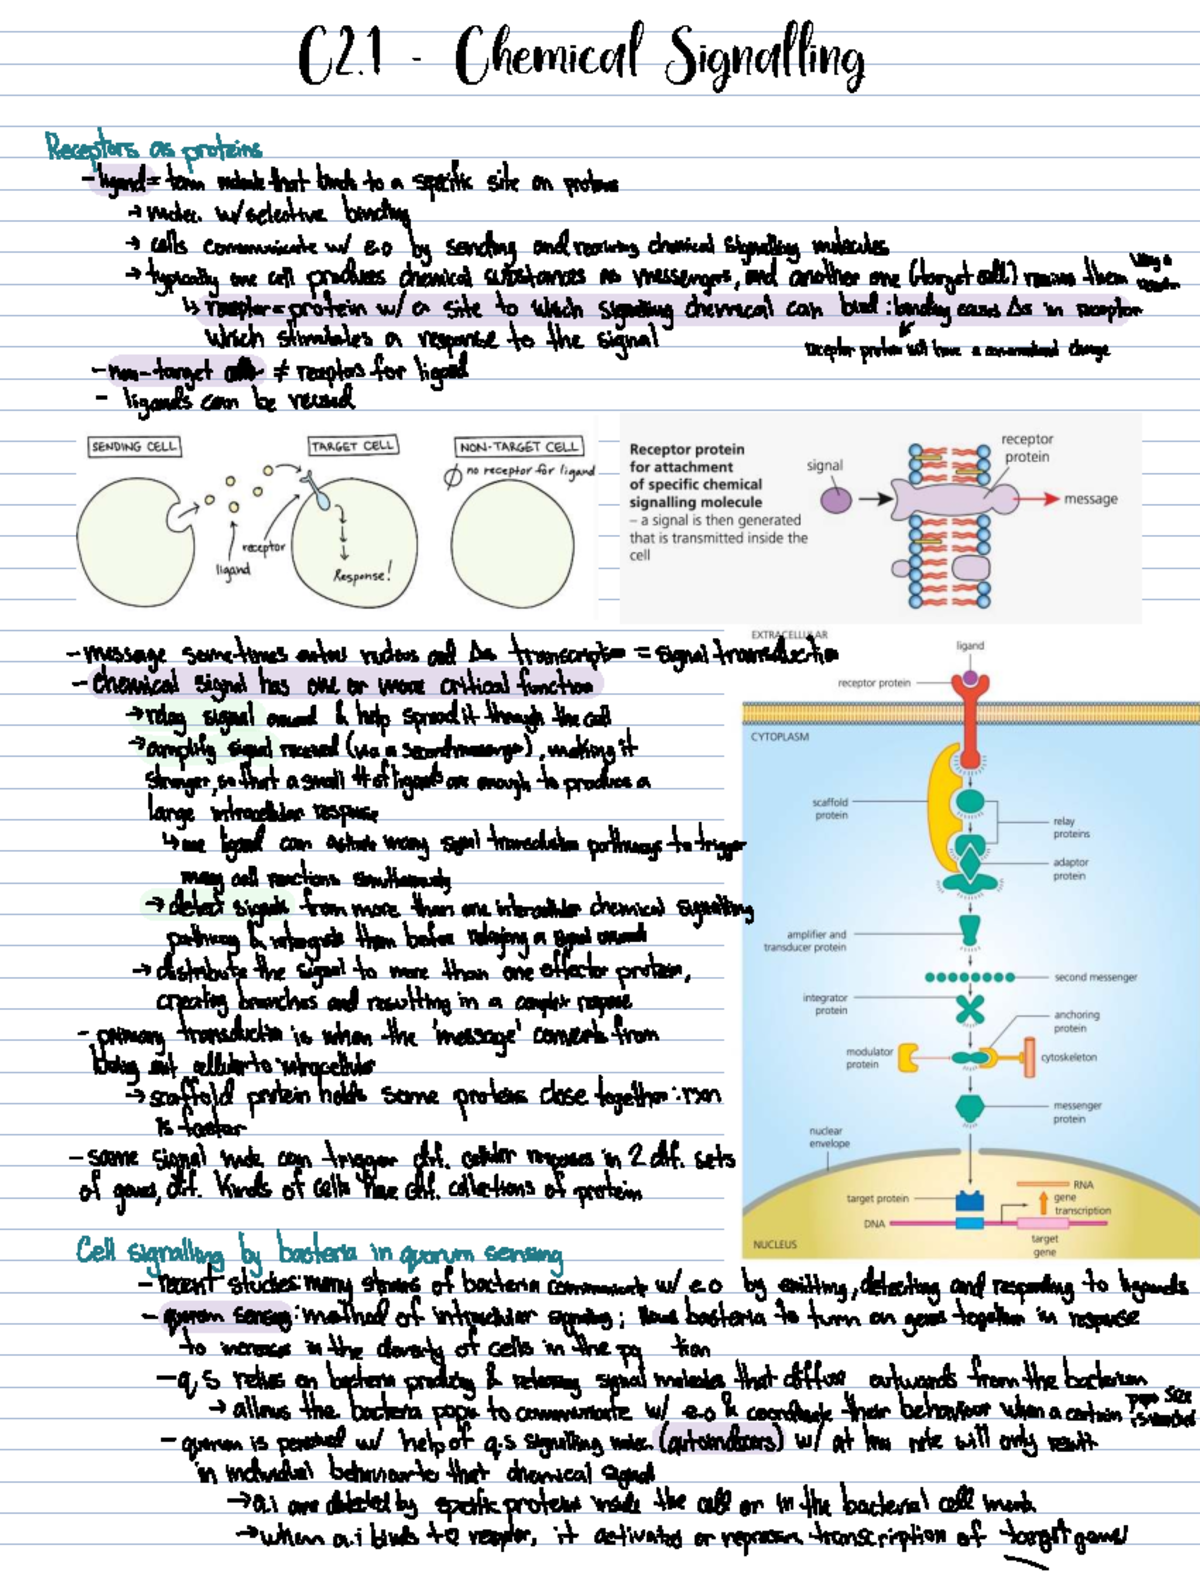 C2.1 - Chemical Signalling
Receptors as proteins
- ligand = term molecule that binds to a specific site on proteins
→ molec. w/ selective binding
→ cells communicate w/ e.o by sending and receiving chemical signalling molecules
→ typically one cell produces chemical substances as messengers, and another one (target cell) receives them using a
↳ receptor = protein w/ a site to which signalling chemical can bind ∴ binding causes Δs in receptor
which stimulates a response to the signal
receptor protein will have a conformational change
- non-target cells ≠ receptors for ligand
- ligands can be reused
SENDING CELL
TARGET CELL
NON-TARGET CELL
∅ no receptor for ligand
receptor
ligand
Response!
Receptor protein
for attachment
of specific chemical
signalling molecule
– a signal is then generated
that is transmitted inside the
cell
signal
receptor
protein
message
- message sometimes enters nucleus and Δs transcription = signal transduction
- chemical signal has one or more critical function
→ relay signal around & help spread it through the cell
→ amplify signal received (via a second messenger), making it
stronger, so that a small # of ligands are enough to produce a
large intracellular response
↳ one ligand can activate many signal transduction pathways to trigger
many cell reactions simultaneously
→ detect signals from more than one intercellular chemical signalling
pathway & integrate them before relaying a signal onward
→ distribute the signal to more than one effector protein,
creating branches and resulting in a complex response
- primary transduction is when the 'message' converts from
being ext cellular to intracellular
→ scaffold protein holds some proteins close together ∴ rxn
is faster
- same signal molc. can trigger dif. cellular responses in 2 dif. sets
of genes, dif. kinds of cells have dif. collections of protein
EXTRACELLULAR
ligand
receptor protein
CYTOPLASM
scaffold
protein
relay
proteins
adaptor
protein
amplifier and
transducer protein
second messenger
integrator
protein
anchoring
protein
modulator
protein
cytoskeleton
messenger
protein
nuclear
envelope
RNA
target protein
gene
transcription
DNA
target
gene
NUCLEUS
Cell signalling by bacteria in quorum sensing
- recent studies: many strains of bacteria communicate w/ e.o by emitting, detecting and responding to ligands
- quorum sensing: method of intracellular signaling; allows bacteria to turn on genes together in response
to increases in the density of cells in the tion
- q.s relies on bacteria producing & releasing signal molecules that diffuse outwards from the bacterium
→ allows the bacteria popn to communicate w/ e.o & coordinate their behaviour when a certain popn size
is reached
- quorum is perceived w/ help of q.s signalling molec. (autoinducers) w/ at low rate will only result
in individual behaviour to that chemical signal
→ a.i are detected by specific proteins inside the cell or in the bacterial cell memb.
→ when a.i binds to receptor, it activates or represses transcription of target genes